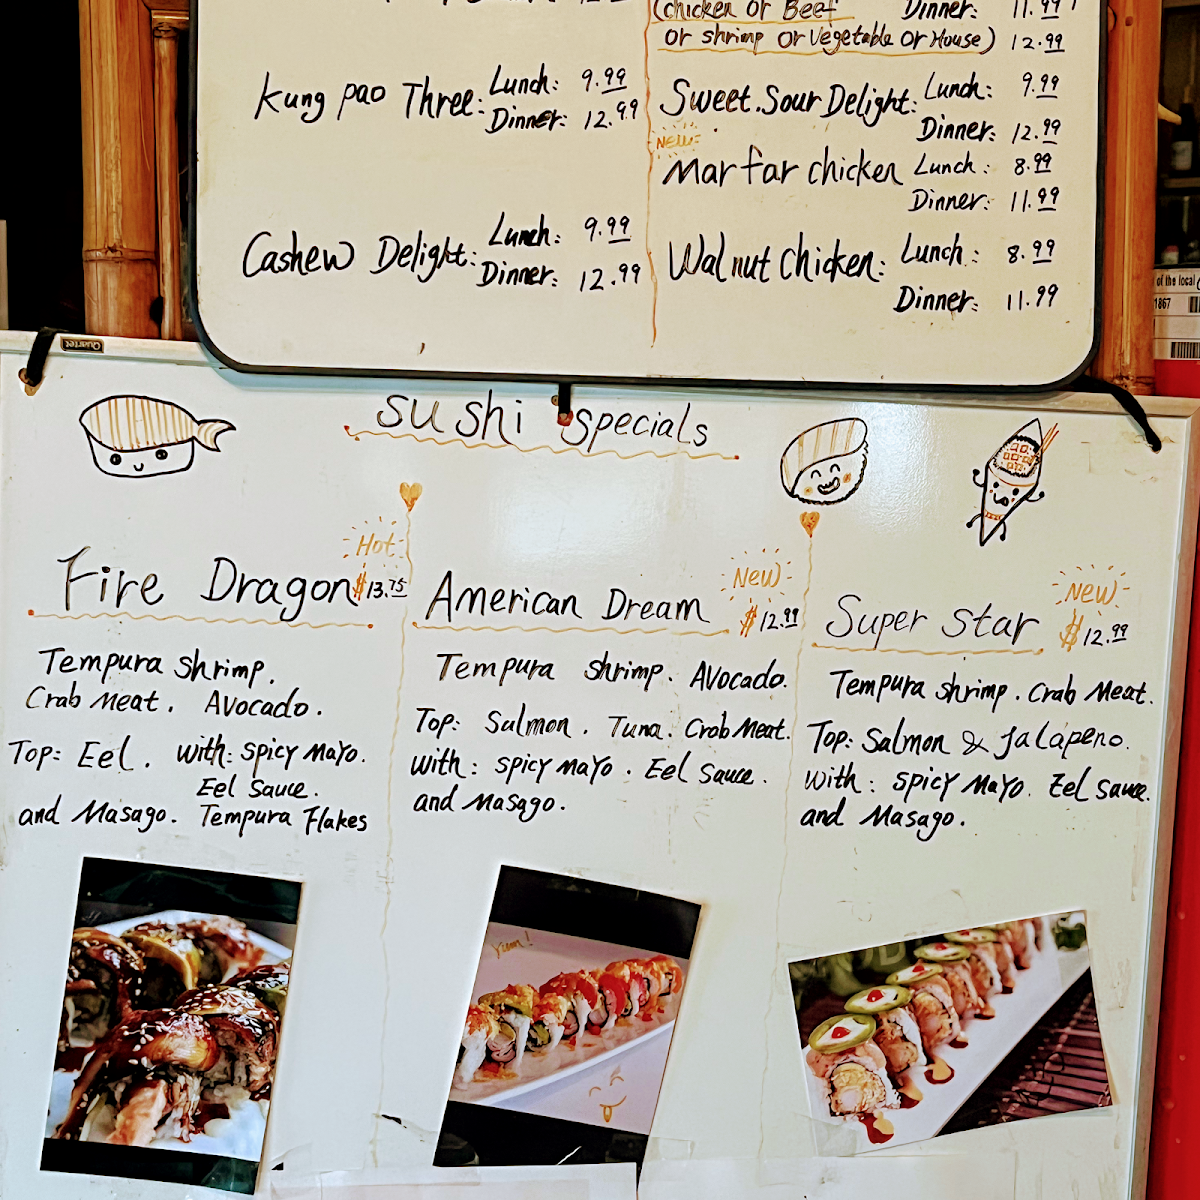 (chicken or Beef Dinner: 11.99
or shrimp or Vegetable or House) 12.99
Kung pao Three: Lunch: 9.99
Dinner: 12.99
Sweet.Sour Delight: Lunch: 9.99
Dinner: 12.99
New
Mar far chicken Lunch: 8.99
Dinner: 11.99
Cashew Delight: Lunch: 9.99
Dinner: 12.99
Walnut Chicken: Lunch: 8.99
Dinner: 11.99
of the local
1867
Quartet
Sushi Specials
Hot
Fire Dragon $13.75
Tempura Shrimp.
Crab Meat. Avocado.
Top: Eel. with: spicy mayo.
Eel Sauce.
and Masago. Tempura Flakes
New
American Dream $12.99
Tempura shrimp. Avocado.
Top: Salmon. Tuna. Crab Meat.
with: spicy mayo. Eel Sauce.
and Masago.
New
Super Star $12.99
Tempura shrimp. Crab Meat.
Top: Salmon & Jalapeno.
with: spicy mayo. Eel Sauce.
and Masago.
Yum!